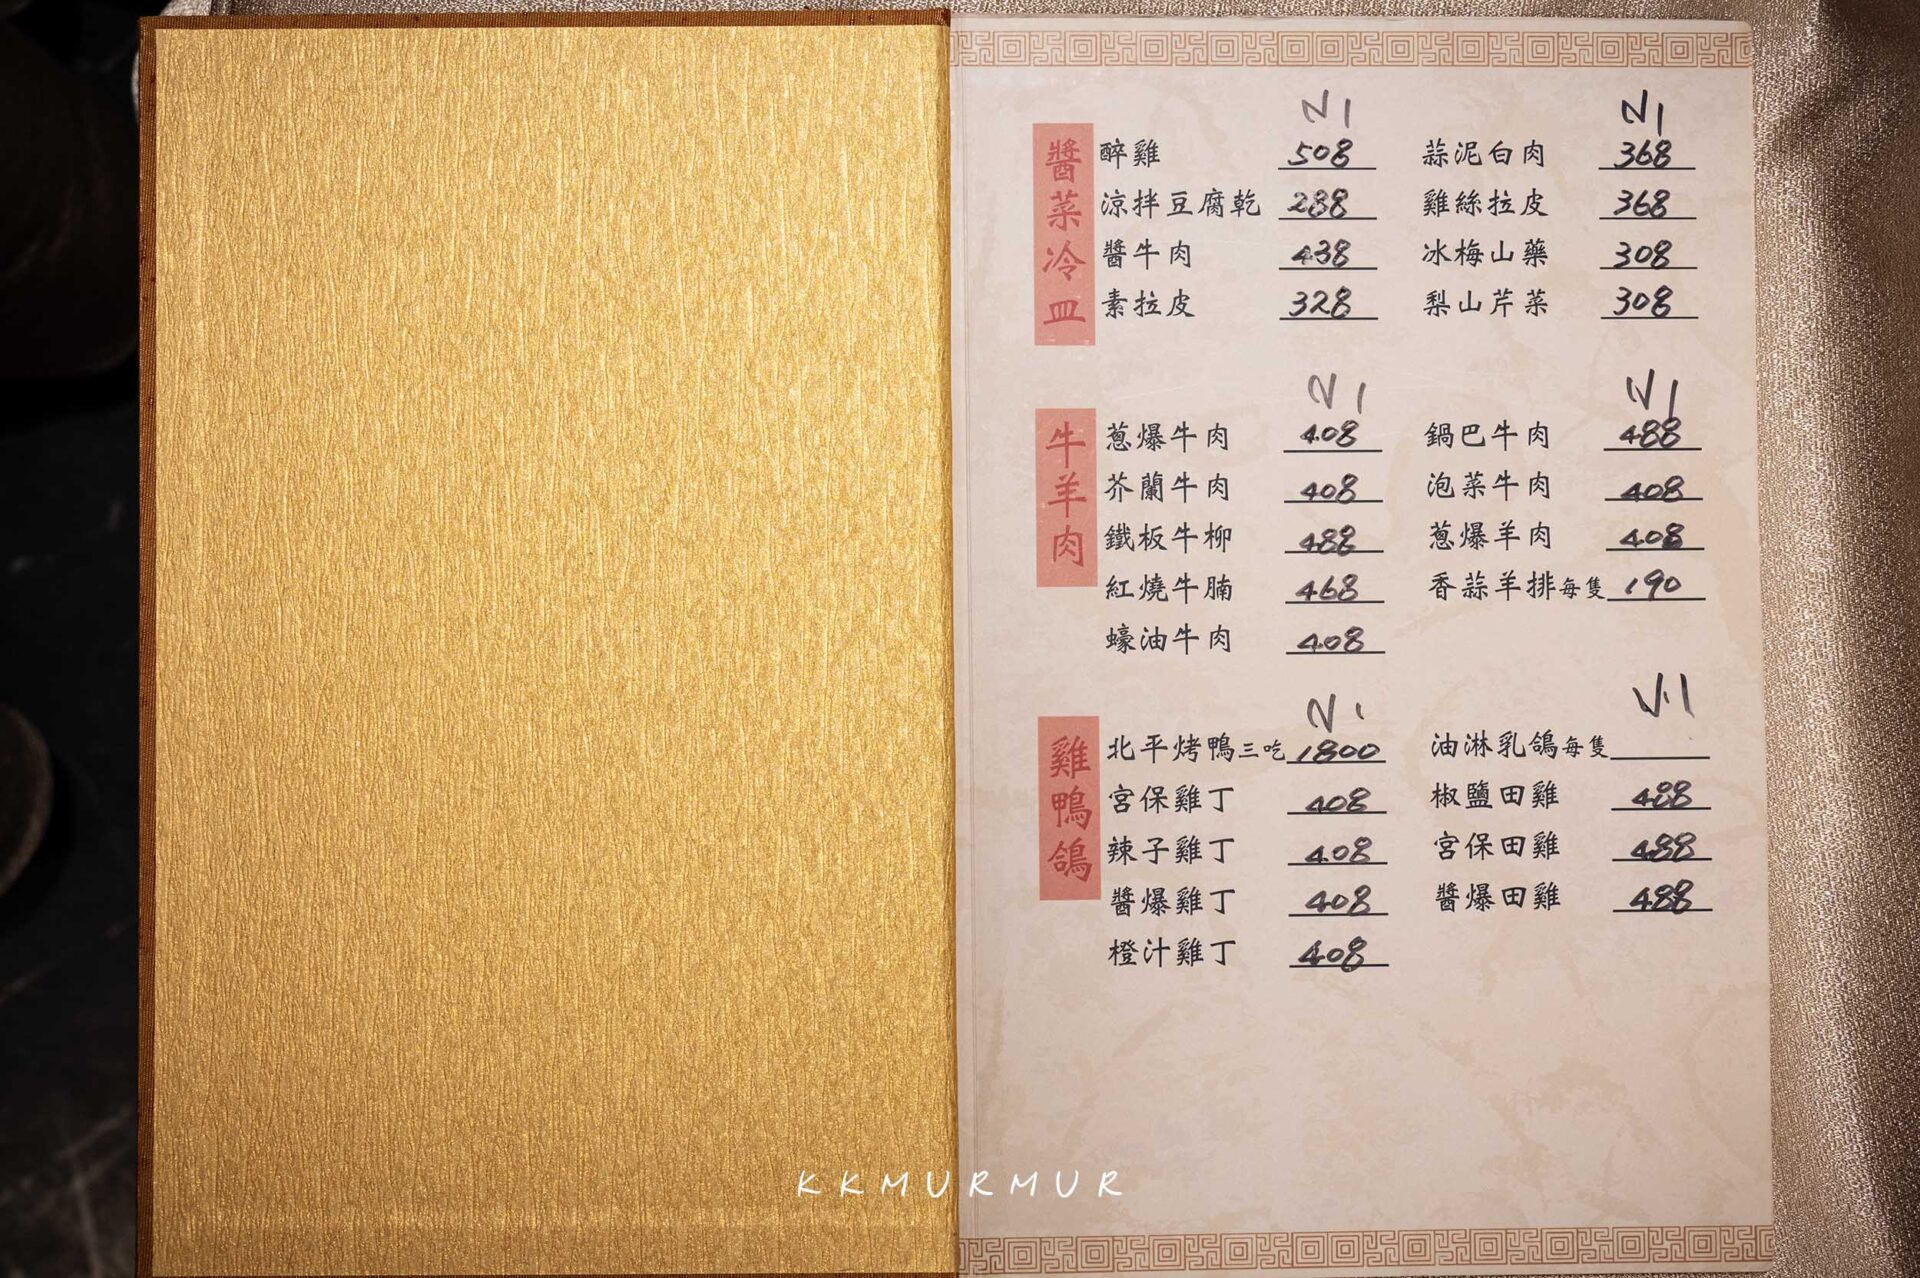 醬菜冷皿
N1 N1
醉雞 508 蒜泥白肉 368
涼拌豆腐乾 288 雞絲拉皮 368
醬牛肉 438 冰梅山藥 308
素拉皮 328 梨山芹菜 308
牛羊肉
N1 N1
蔥爆牛肉 408 鍋巴牛肉 488
芥蘭牛肉 408 泡菜牛肉 408
鐵板牛柳 488 蔥爆羊肉 408
紅燒牛腩 468 香蒜羊排每隻 190
蠔油牛肉 408
雞鴨鴿
N1
北平烤鴨三吃 1800 油淋乳鴿每隻
宮保雞丁 408 椒鹽田雞 488
辣子雞丁 408 宮保田雞 488
醬爆雞丁 408 醬爆田雞 488
橙汁雞丁 408
KKMURMUR